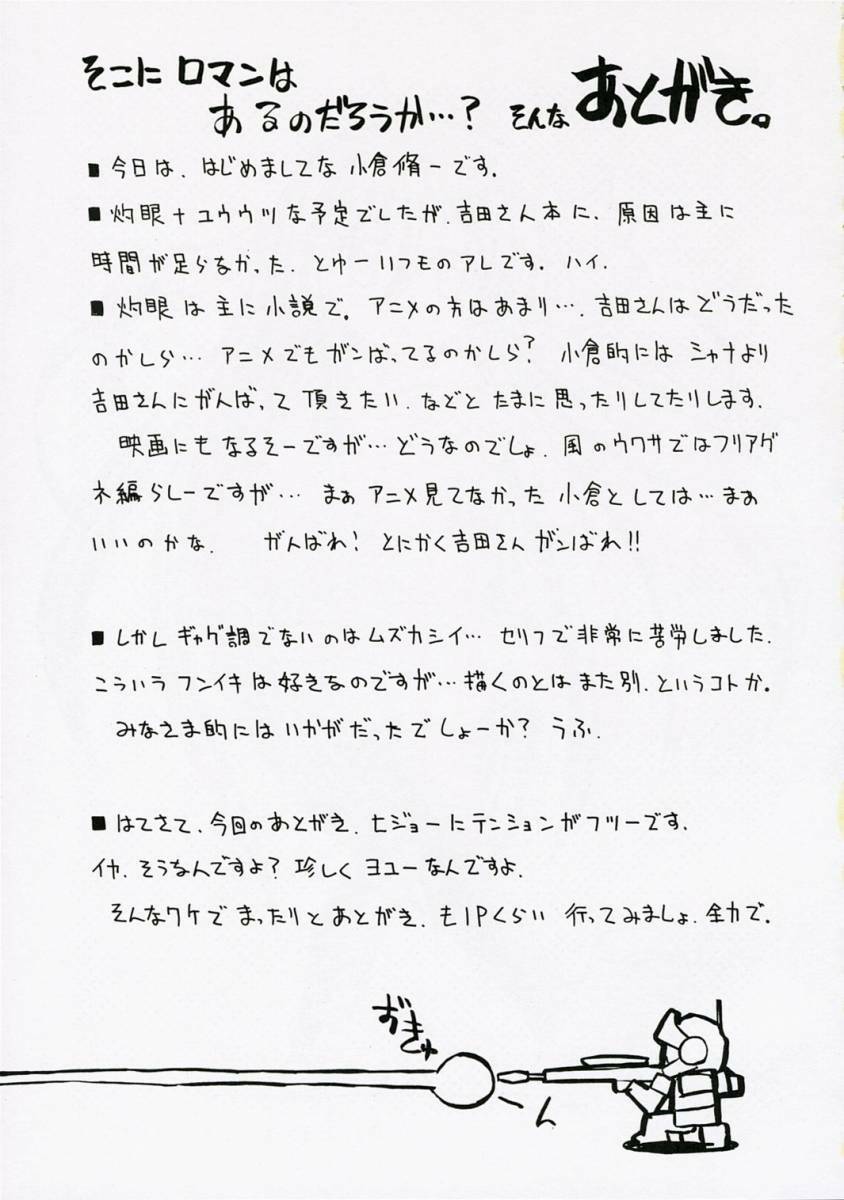 そこに ロマンは
あるのだろうか…? そんな あとがき。
■ 今日は、はじめましてな 小倉脩一です。
■ 灼眼+ユウウツな予定でしたが、吉田さん本に、原因は主に
時間が足らなかった、とゆーいつものアレです。ハイ、
■ 灼眼は主に小説で。アニメの方はあまり…、吉田さんはどうだった
のかしら… アニメでもガンばってるのかしら? 小倉的には シャナより
吉田さんにがんばって頂きたい、などと たまに思ったりしてたりします。
映画にも なるそーですが… どうなのでしょ、風のウワサではフリアグ
ネ編らしーですが… まぁ アニメ見てなかった 小倉としては… まぁ
いいのかな、 がんばれ! とにかく吉田さん ガンばれ!!
■ しかし ギャグ調でないのはムズカシイ… セリフで非常に苦労しました、
こういう フンイキは好きなのですが… 描くのとは また別、というコトか。
みなさま的には いかがだったでしょーか? うふ、
■ はてさて、今回のあとがき、ヒジョーにテンションがフツーです、
イヤ、そうなんですよ? 珍しく ヨユーなんですよ、
そんなワケで まったりと あとがき、も1Pくらい 行ってみましょ、全力で。
おきゅ
ーん